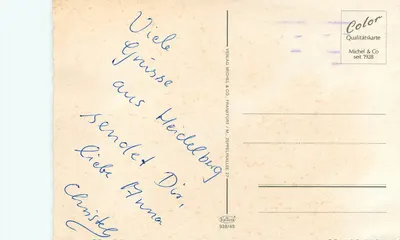 Viele
Grüsse
aus Heidelburg
sendet Dir,
liebe Anna
Christel
VERLAG MICHEL & CO., FRANKFURT / M.
Color
Qualitätskarte
Michel & Co
seit 1928